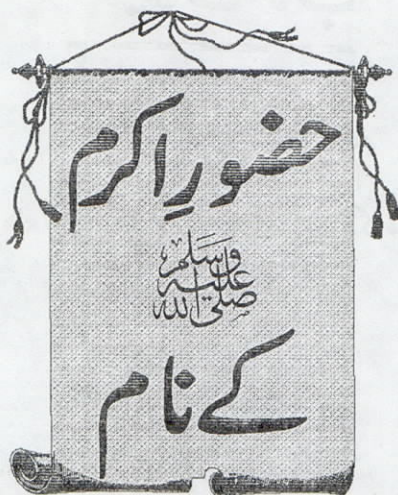 حضورِ اکرم
صلی اللہ علیہ وسلم
کے نام